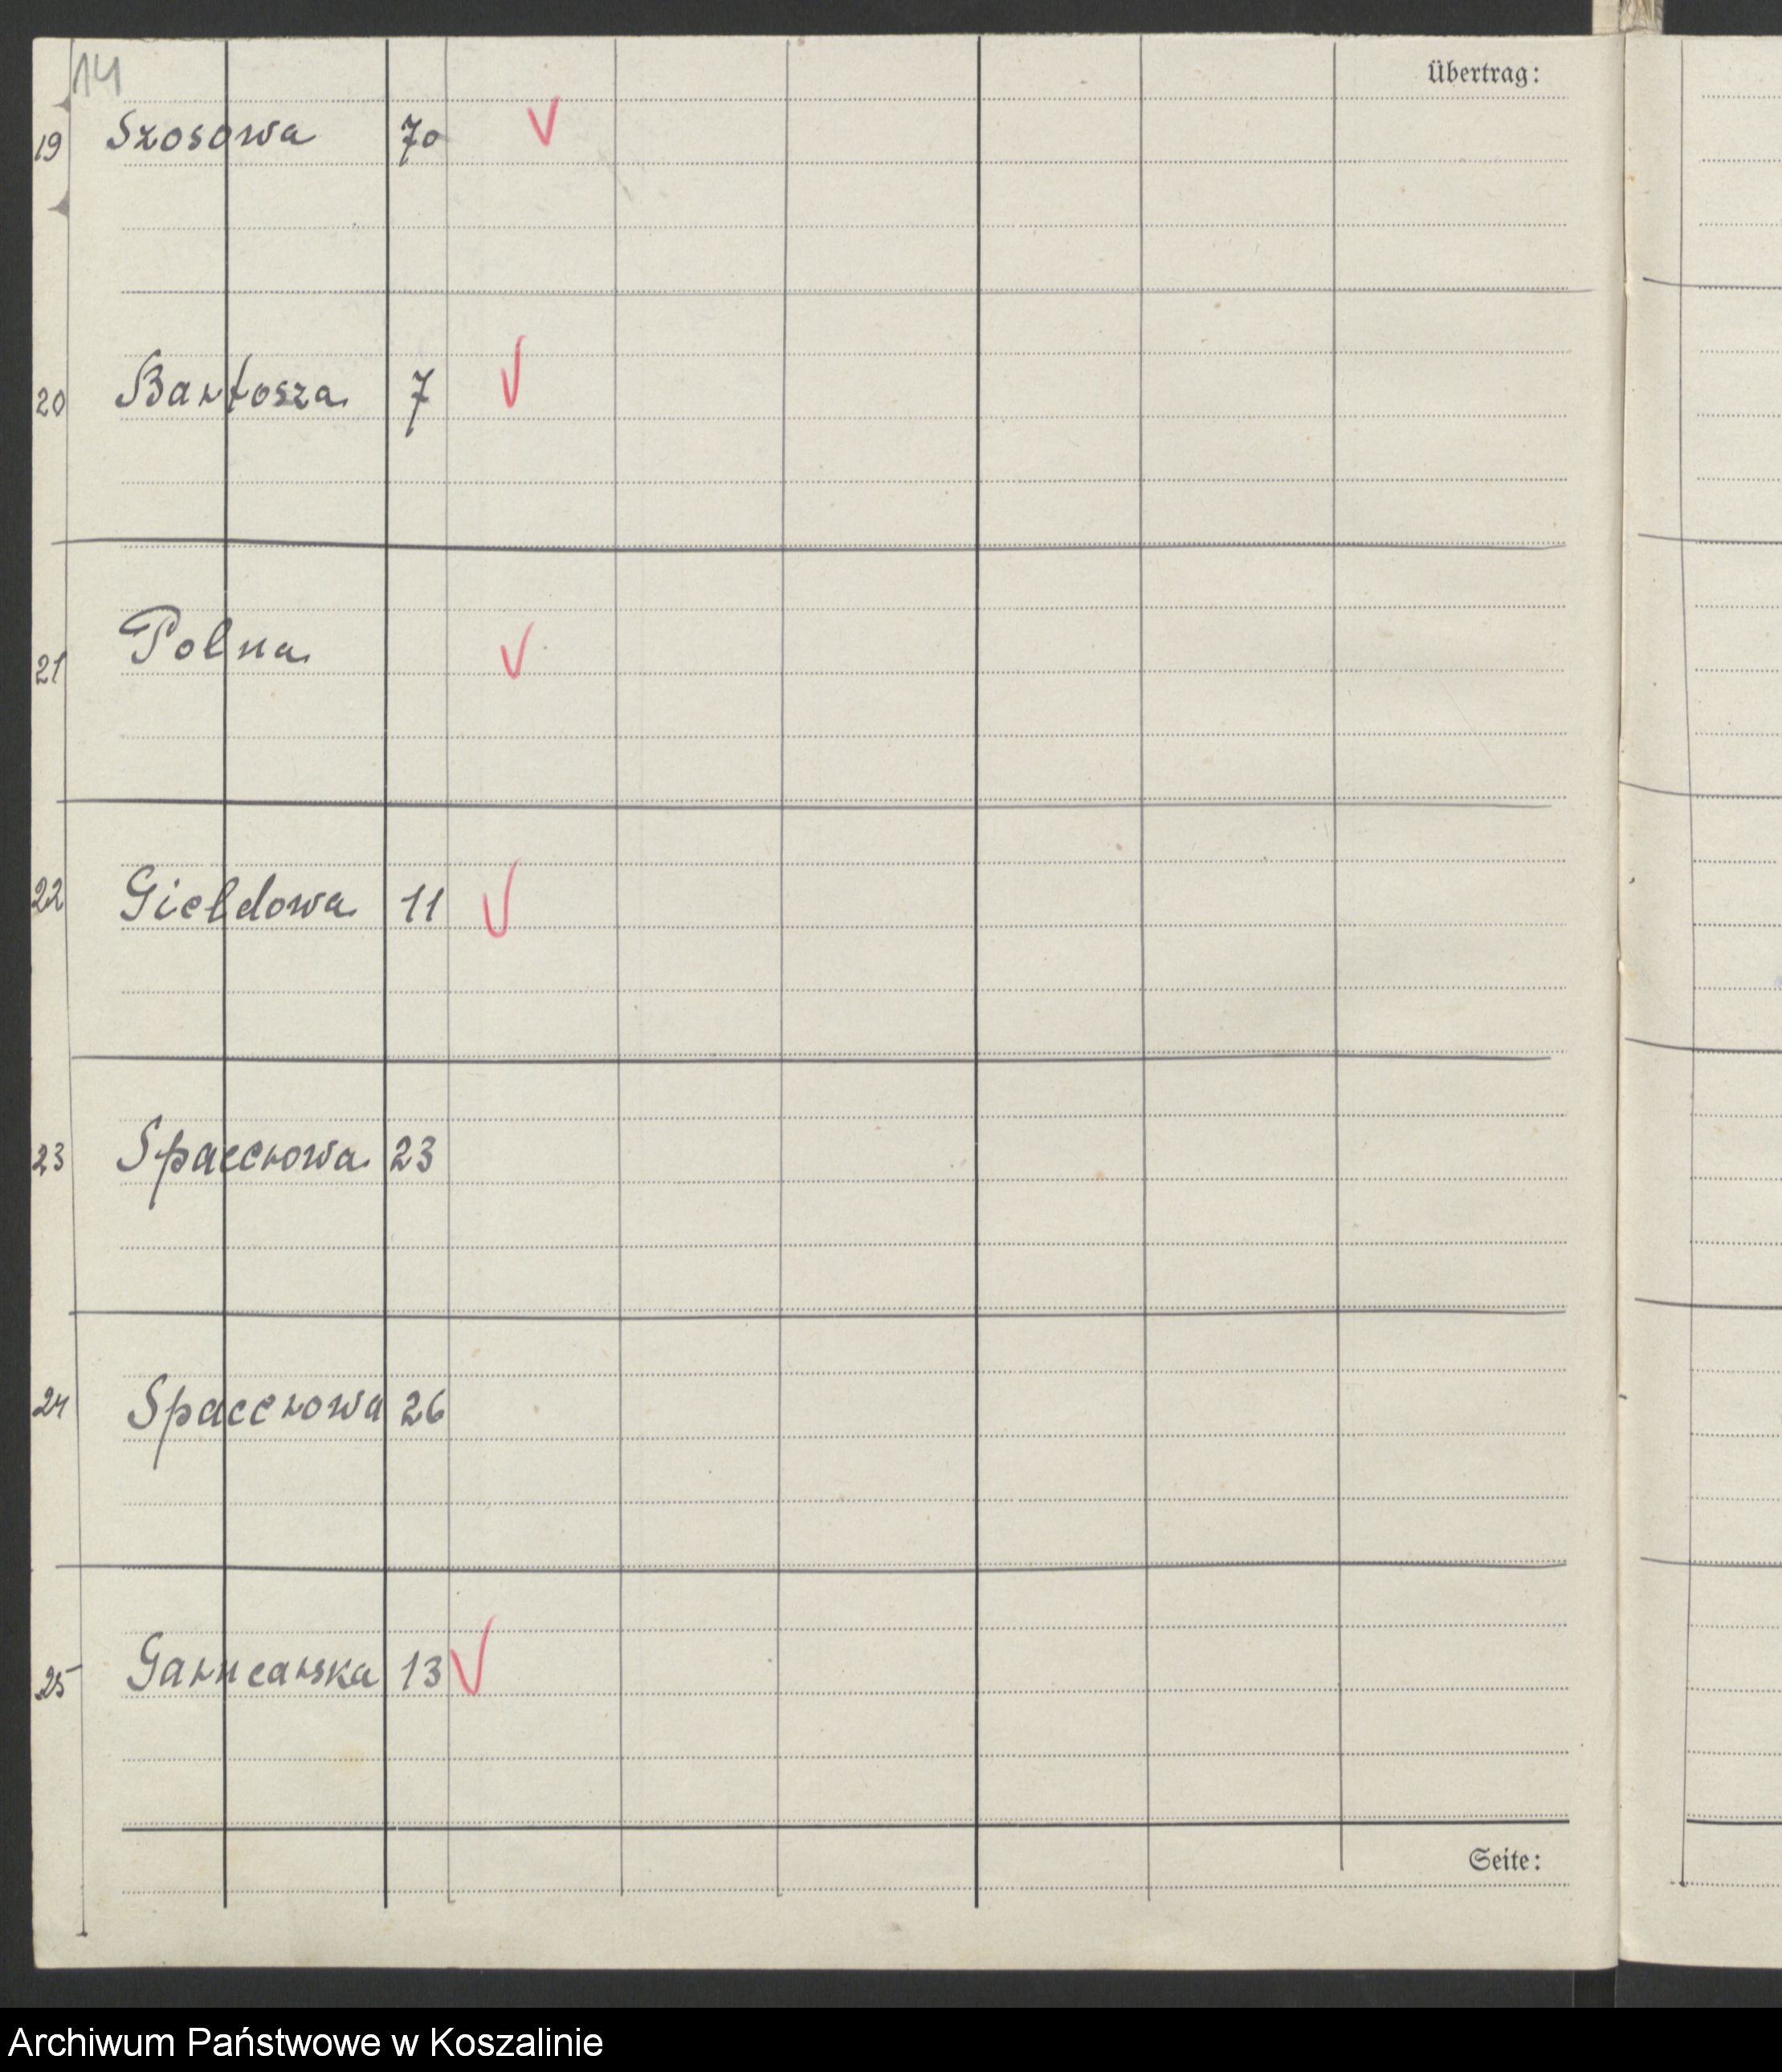 14
Übertrag:
19 Szosowa 70 √
20 Bartosza 7 √
21 Polna √
22 Giełdowa 11 √
23 Spacerowa 23
24 Spacerowa 26
25 Garncarska 13 √
Seite:
Archiwum Państwowe w Koszalinie